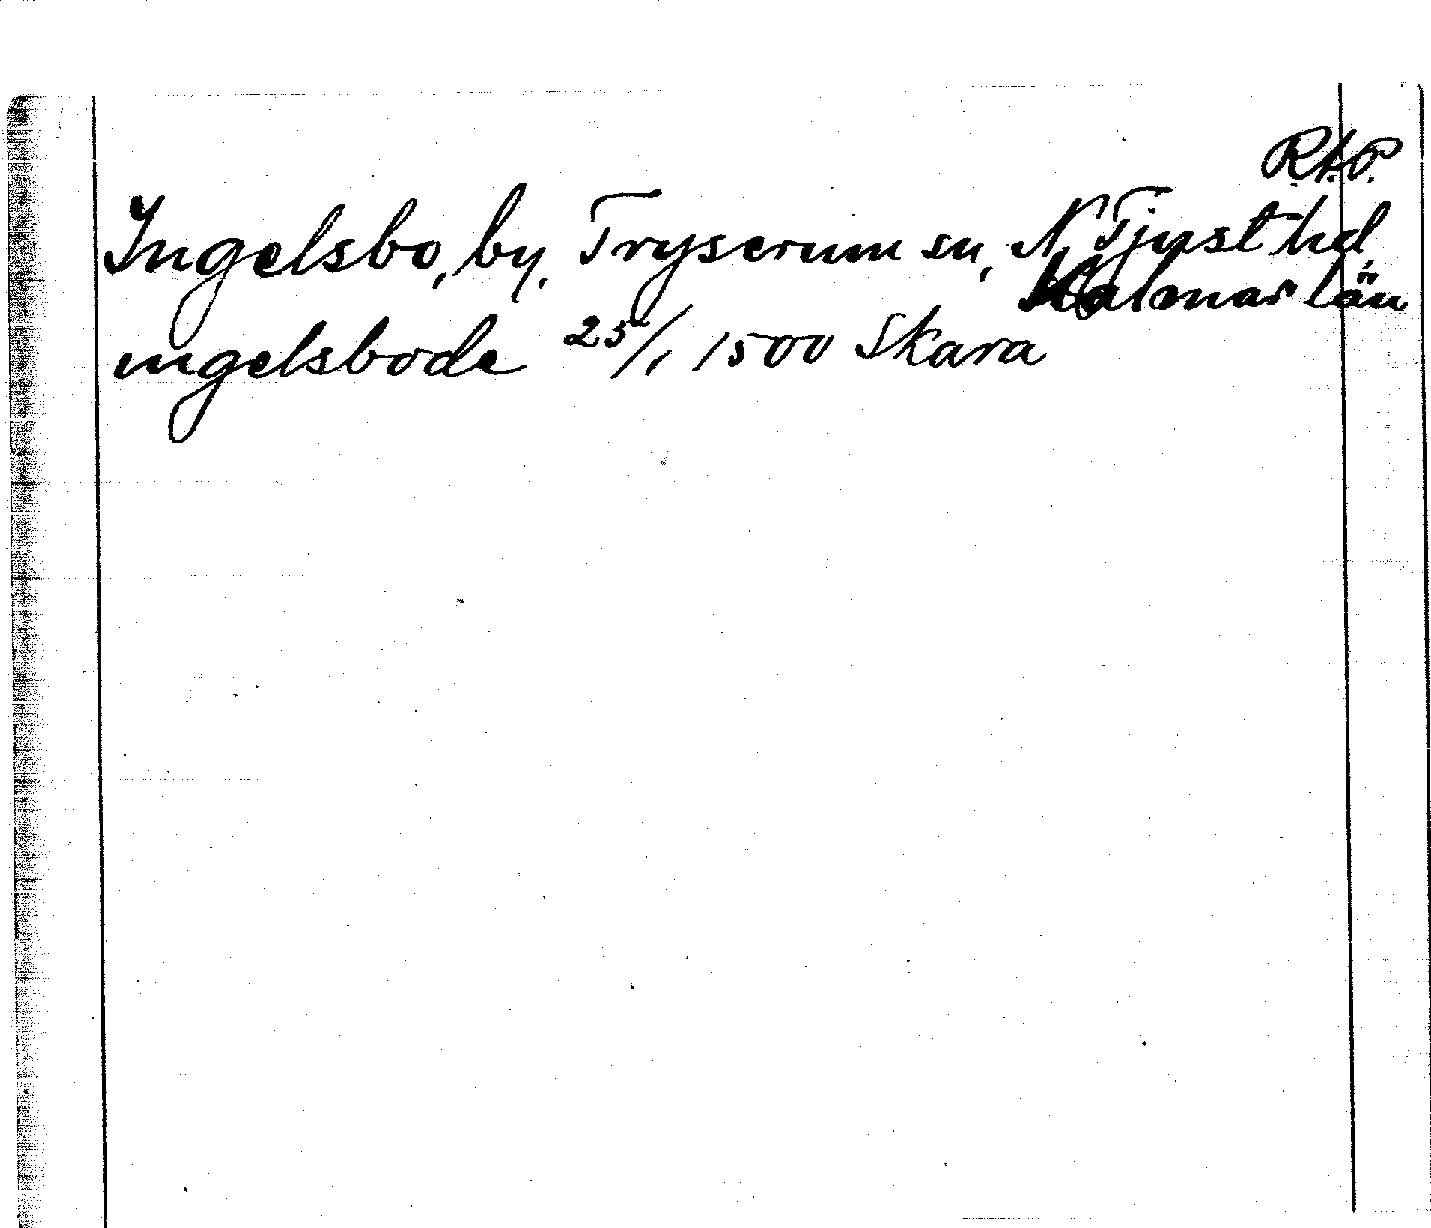 R.A.P.
Ingelsbo, by, Tryserum sn, N Tjust hd,
Kalmar län
ingelsbode 25/1 1500 Skara